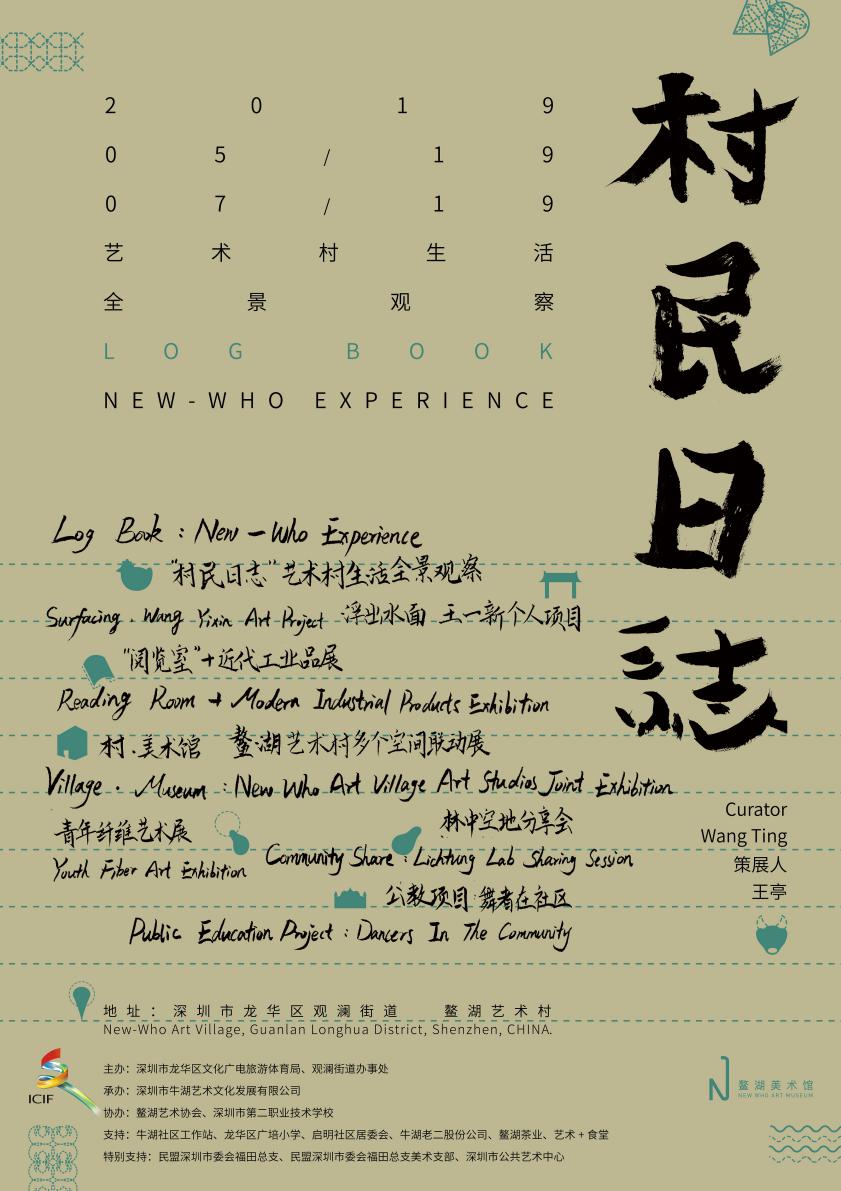 村民日誌
2019
05/19
07/19
艺术村生活
全景观察
LOG BOOK
NEW-WHO EXPERIENCE
Log Book : New - Who Experience
“村民日志”艺术村生活全景观察
Surfacing · Wang Yixin Art Project 浮出水面 王一新个人项目
“阅览室”+近代工业品展
Reading Room + Modern Industrial Products Exhibition
村·美术馆 鳌湖艺术村多个空间联动展
Village · Museum : New Who Art Village Art Studios Joint Exhibition
青年纤维艺术展
Youth Fiber Art Exhibition
林中空地分享会
Community Share : Lichtung Lab Sharing Session
公教项目·舞者在社区
Public Education Project : Dancers In The Community
Curator
Wang Ting
策展人
王亭
地址：深圳市龙华区观澜街道 鳌湖艺术村
New-Who Art Village, Guanlan Longhua District, Shenzhen, CHINA.
主办：深圳市龙华区文化广电旅游体育局、观澜街道办事处
承办：深圳市牛湖艺术文化发展有限公司
协办：鳌湖艺术协会、深圳市第二职业技术学校
支持：牛湖社区工作站、龙华区广培小学、启明社区居委会、牛湖老二股份公司、鳌湖茶业、艺术 + 食堂
特别支持：民盟深圳市委会福田总支、民盟深圳市委会福田总支美术支部、深圳市公共艺术中心
ICIF
鳌湖美术馆
NEW WHO ART MUSEUM